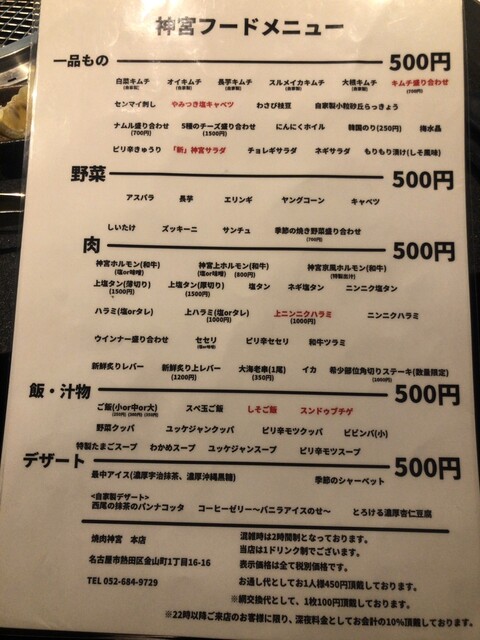 神宮フードメニュー
一品もの 500円
白菜キムチ オイキムチ 長芋キムチ スルメイカキムチ 大根キムチ キムチ盛り合わせ
(自家製) (自家製) (自家製) (自家製) (700円)
センマイ刺し やみつき塩キャベツ わさび枝豆 自家製小粒砂丘らっきょう
ナムル盛り合わせ 5種のチーズ盛り合わせ にんにくホイル 韓国のり(250円) 梅水晶
(700円) (1500円)
ピリ辛きゅうり 「新」神宮サラダ チョレギサラダ ネギサラダ もりもり漬け(しそ風味)
野菜 500円
アスパラ 長芋 エリンギ ヤングコーン キャベツ
しいたけ ズッキーニ サンチュ 季節の焼き野菜盛り合わせ
(700円)
肉 500円
神宮ホルモン(和牛) 神宮上ホルモン(和牛) 神宮京風ホルモン(和牛)
(塩or味噌) (塩or味噌) (800円) (特製出汁)
上塩タン(薄切り) 上塩タン(厚切り) 塩タン ネギ塩タン ニンニク塩タン
(1500円) (1500円)
ハラミ(塩orタレ) 上ハラミ(塩orタレ) 上ニンニクハラミ ニンニクハラミ
(1000円) (1000円)
ウインナー盛り合せ セセリ ピリ辛セセリ 和牛ツラミ
新鮮炙りレバー 新鮮炙り上レバー 大海老串(1尾) イカ 希少部位角切りステーキ(数量限定)
(1200円) (350円) (1800円)
飯・汁物 500円
ご飯(小or中or大) スペ玉ご飯 しそご飯 スンドゥブチゲ
野菜クッパ ユッケジャンクッパ ピリ辛モツクッパ ビビンバ(小)
特製たまごスープ わかめスープ ユッケジャンスープ ピリ辛モツスープ
デザート 500円
最中アイス(濃厚宇治抹茶、濃厚沖縄黒糖) 季節のシャーベット
<自家製デザート>
西尾の抹茶のパンナコッタ コーヒーゼリー〜バニラアイスのせ〜 とろける濃厚杏仁豆腐
焼肉神宮 本店
名古屋市熱田区金山町1丁目16-16
TEL 052-684-9729
混雑時は2時間制となっております。
当店は1ドリンク制でございます。
表示価格は全て税別価格です。
お通し代としてお1人様450円頂戴しております。
※網交換代として、1枚100円頂戴しております。
※22時以降ご来店のお客様に限り、深夜料金としてお会計の10%頂戴しております。